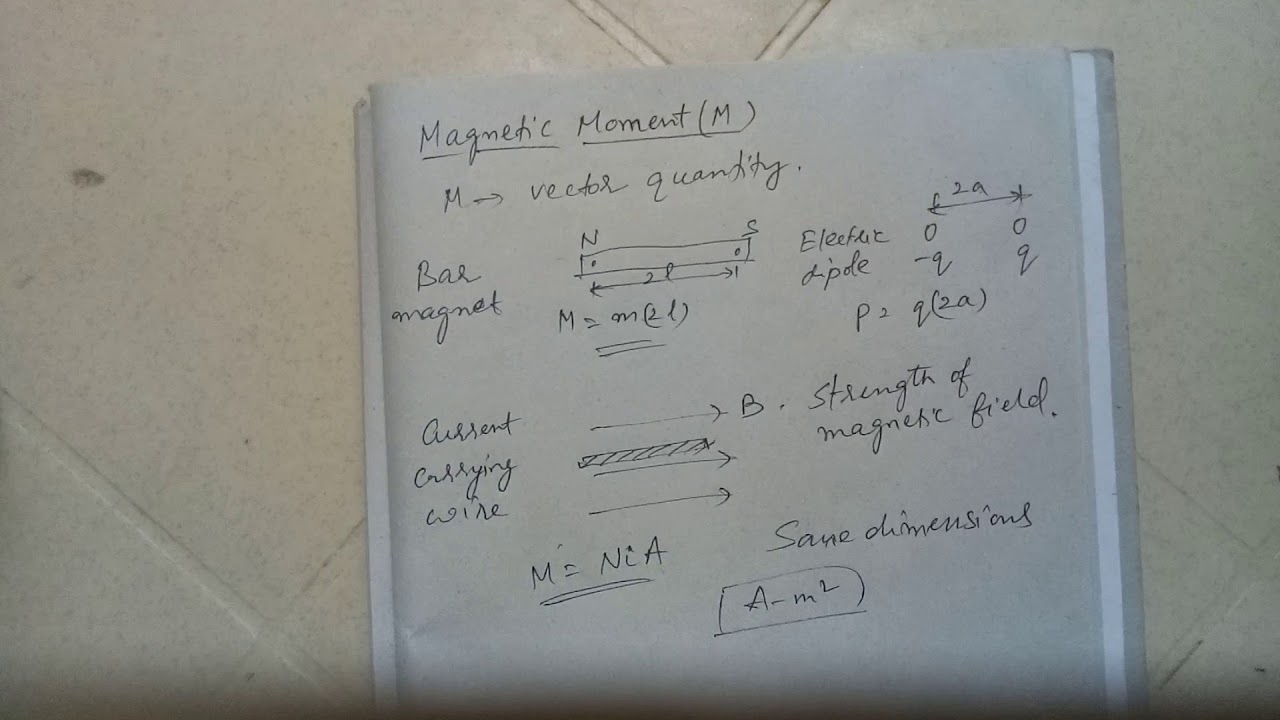 Magnetic Moment (M)
M → vector quantity.
2a
N S
Electric 0 0
Bar
2l
dipole -q q
magnet
M = m(2l)
P = q(2a)
Current
B . strength of
magnetic field.
carrying
wire
Same dimensions
M = NiA
A-m²